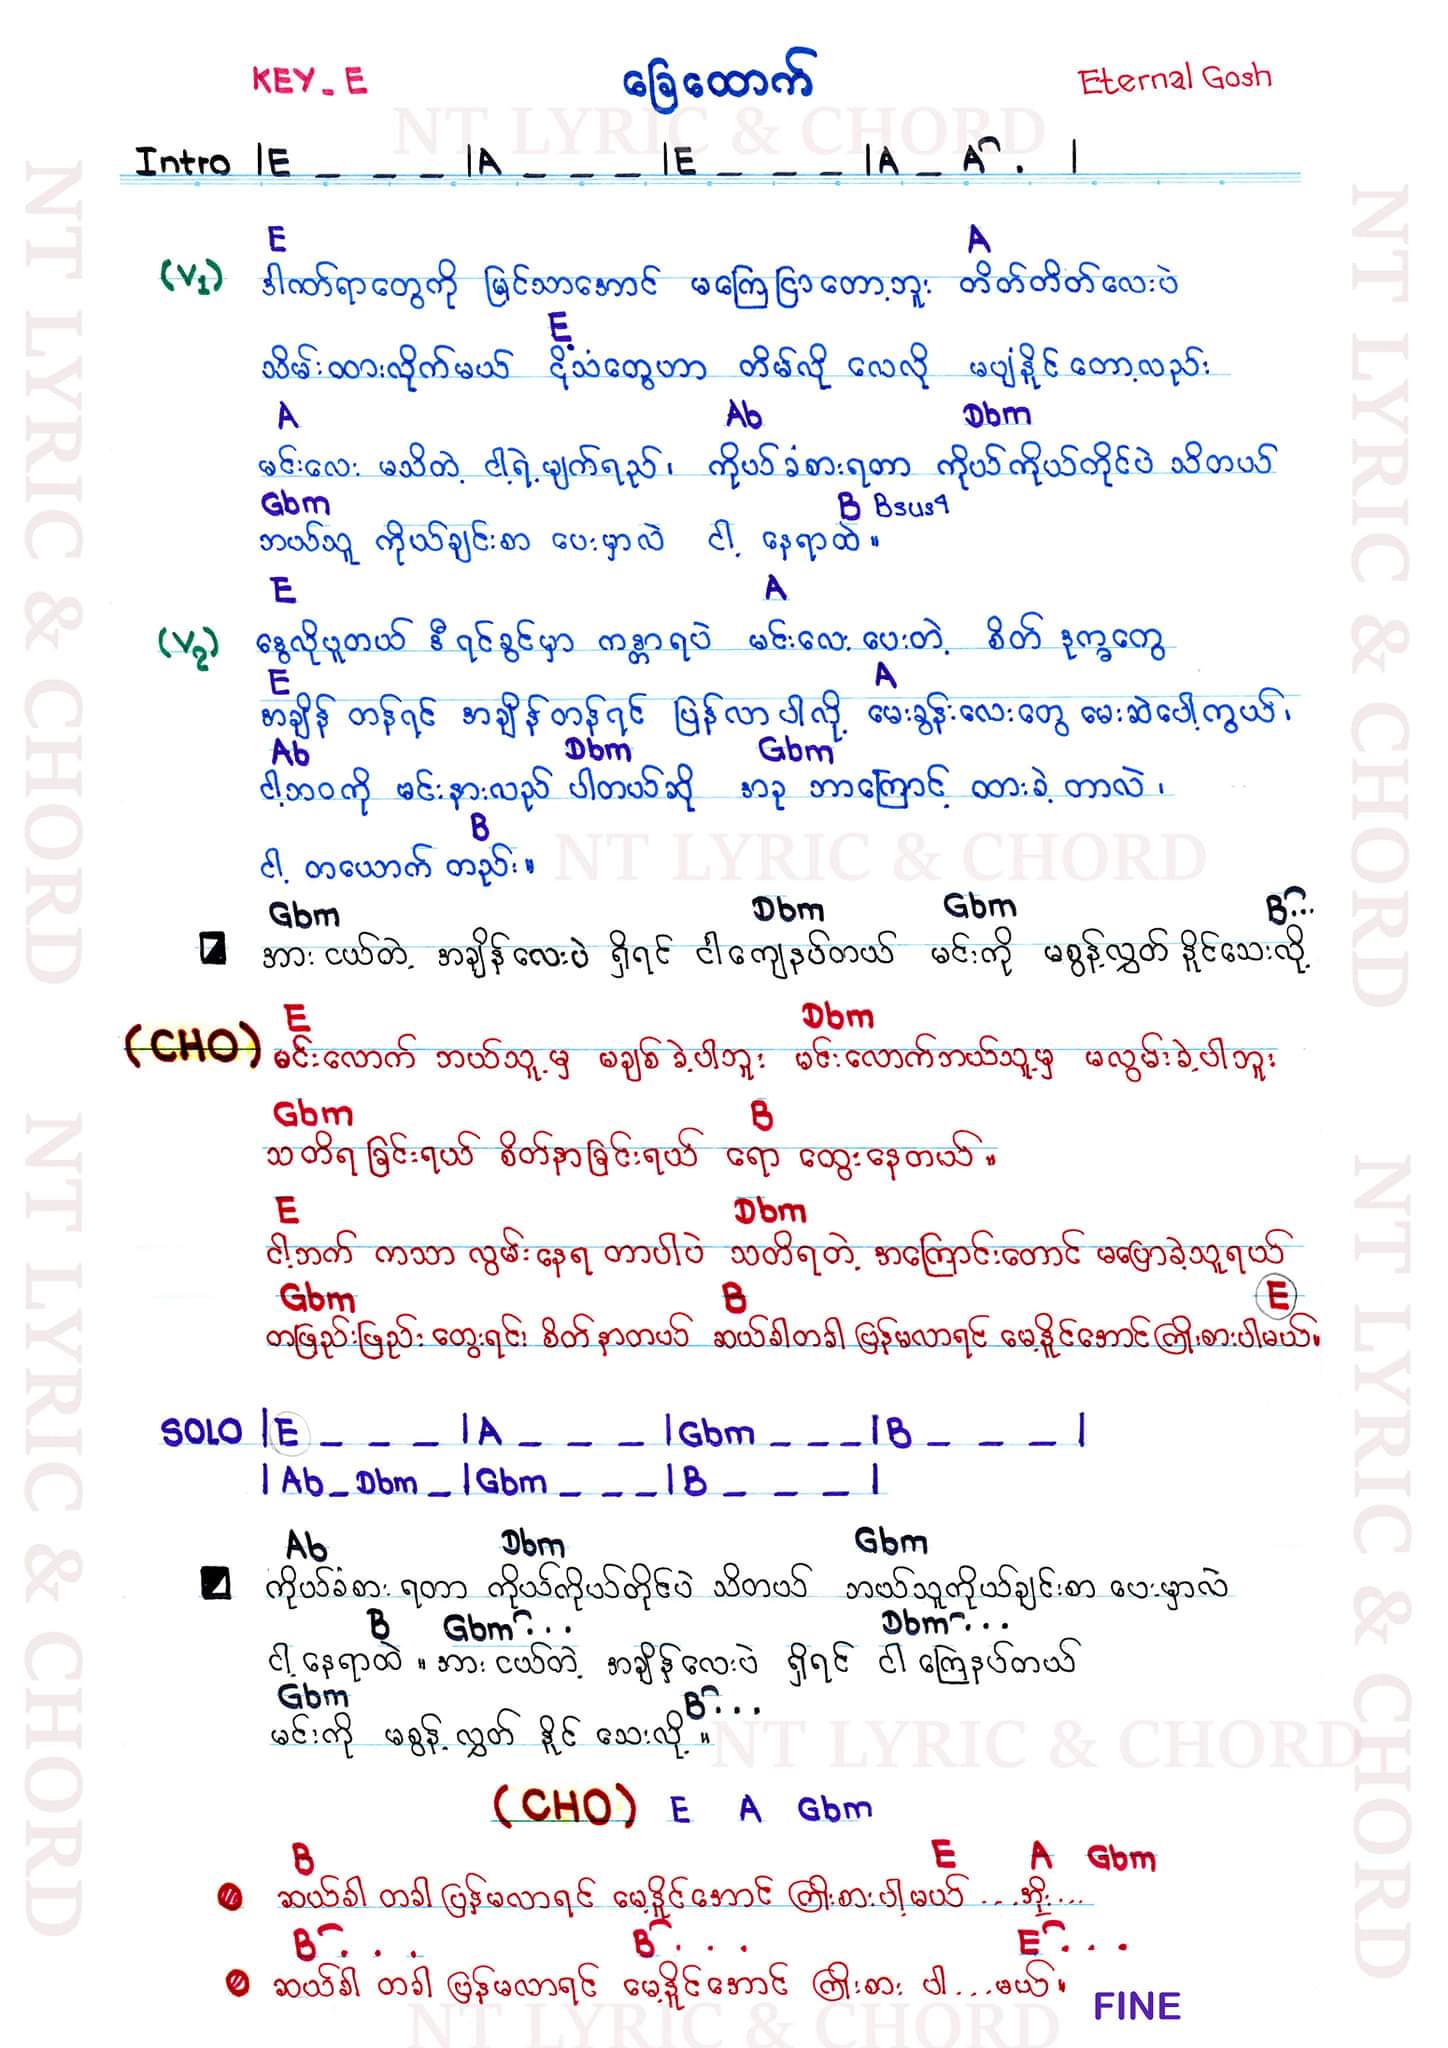 KEY - E ခြေထောက် Eternal Gosh
NT LYRIC & CHORD
Intro |E _ _ _ |A _ _ _ |E _ _ _ |A _ A . |
E A
(V1) ဒါဏ်ရာတွေကို မြင်သာအောင် မကြေငြာတော့ဘူး တိတ်တိတ်လေးပဲ
E
သိမ်းထားလိုက်မယ် ငိုသံတွေဟာ တိမ်လို လေလို မပျံနိုင်တော့လည်း
A Ab Dbm
မင်းလေး မသိတဲ့ ငါ့ရဲ့မျက်ရည်၊ ကိုယ်ခံစားရတာ ကိုယ်ကိုယ်တိုင်ပဲ သိတယ်
Gbm B Bsus4
ဘယ်သူ ကိုယ်ချင်းစာ ပေးမှာလဲ ငါ့ နေရာထဲ။
E A
(V2) နွေလိုပူတယ် ဒီရင်ခွင်မှာ ကန္တာရပဲ မင်းလေးပေးတဲ့ စိတ်ဒုက္ခတွေ
E A
အချိန်တန်ရင် အချိန်တန်ရင် ပြန်လာပါလို့ မေးခွန်းလေးတွေ မေးဆဲပေါ့ကွယ်၊
Ab Dbm Gbm
ငါ့ဘဝကို မင်းနားလည်ပါတယ်ဆို အခု ဘာကြောင့် ထားခဲ့တာလဲ၊
B
ငါ့ တယောက်တည်း။
NT LYRIC & CHORD
Gbm Dbm Gbm B...
အားငယ်တဲ့ အချိန်လေးပဲ ရှိရင် ငါကျေနပ်တယ် မင်းကို မစွန့်လွှတ်နိုင်သေးလို့
E Dbm
(CHO) မင်းလောက် ဘယ်သူ့မှ မချစ်ခဲ့ပါဘူး မင်းလောက်ဘယ်သူ့မှ မလွမ်းခဲ့ပါဘူး
Gbm B
သတိရခြင်းရယ် စိတ်နာခြင်းရယ် ရော ထွေးနေတယ်။
E Dbm
ငါ့ဘက် ကသာ လွမ်းနေရတာပါပဲ သတိရတဲ့ အကြောင်းတောင် မပြောခဲ့သူရယ်
Gbm B E
တဖြည်းဖြည်း တွေးရင်း စိတ်နာတယ် ဆယ်ခါတခါ ပြန်မလာရင် မေ့နိုင်အောင်ကြိုးစားပါမယ်။
SOLO |E _ _ _ |A _ _ _ |Gbm _ _ _ |B _ _ _ |
|Ab _ Dbm _ |Gbm _ _ _ |B _ _ _ |
Ab Dbm Gbm
ကိုယ်ခံစားရတာ ကိုယ်ကိုယ်တိုင်ပဲ သိတယ် ဘယ်သူကိုယ်ချင်းစာ ပေးမှာလဲ
B Gbm... Dbm...
ငါ့နေရာထဲ။ အားငယ်တဲ့ အချိန်လေးပဲ ရှိရင် ငါကြေနပ်တယ်
Gbm B...
မင်းကို မစွန့်လွှတ် နိုင်သေးလို့။
NT LYRIC & CHORD
(CHO) E A Gbm
B E A Gbm
ဆယ်ခါ တခါ ပြန်မလာရင် မေ့နိုင်အောင် ကြိုးစားပါ့မယ် ...အိုး...
B... B... E...
ဆယ်ခါ တခါ ပြန်မလာရင် မေ့နိုင်အောင် ကြိုးစား ပါ...မယ်။
FINE
NT LYRIC & CHORD
NT LYRIC & CHORD
NT LYRIC & CHORD
NT LYRIC & CHORD
NT LYRIC & CHORD